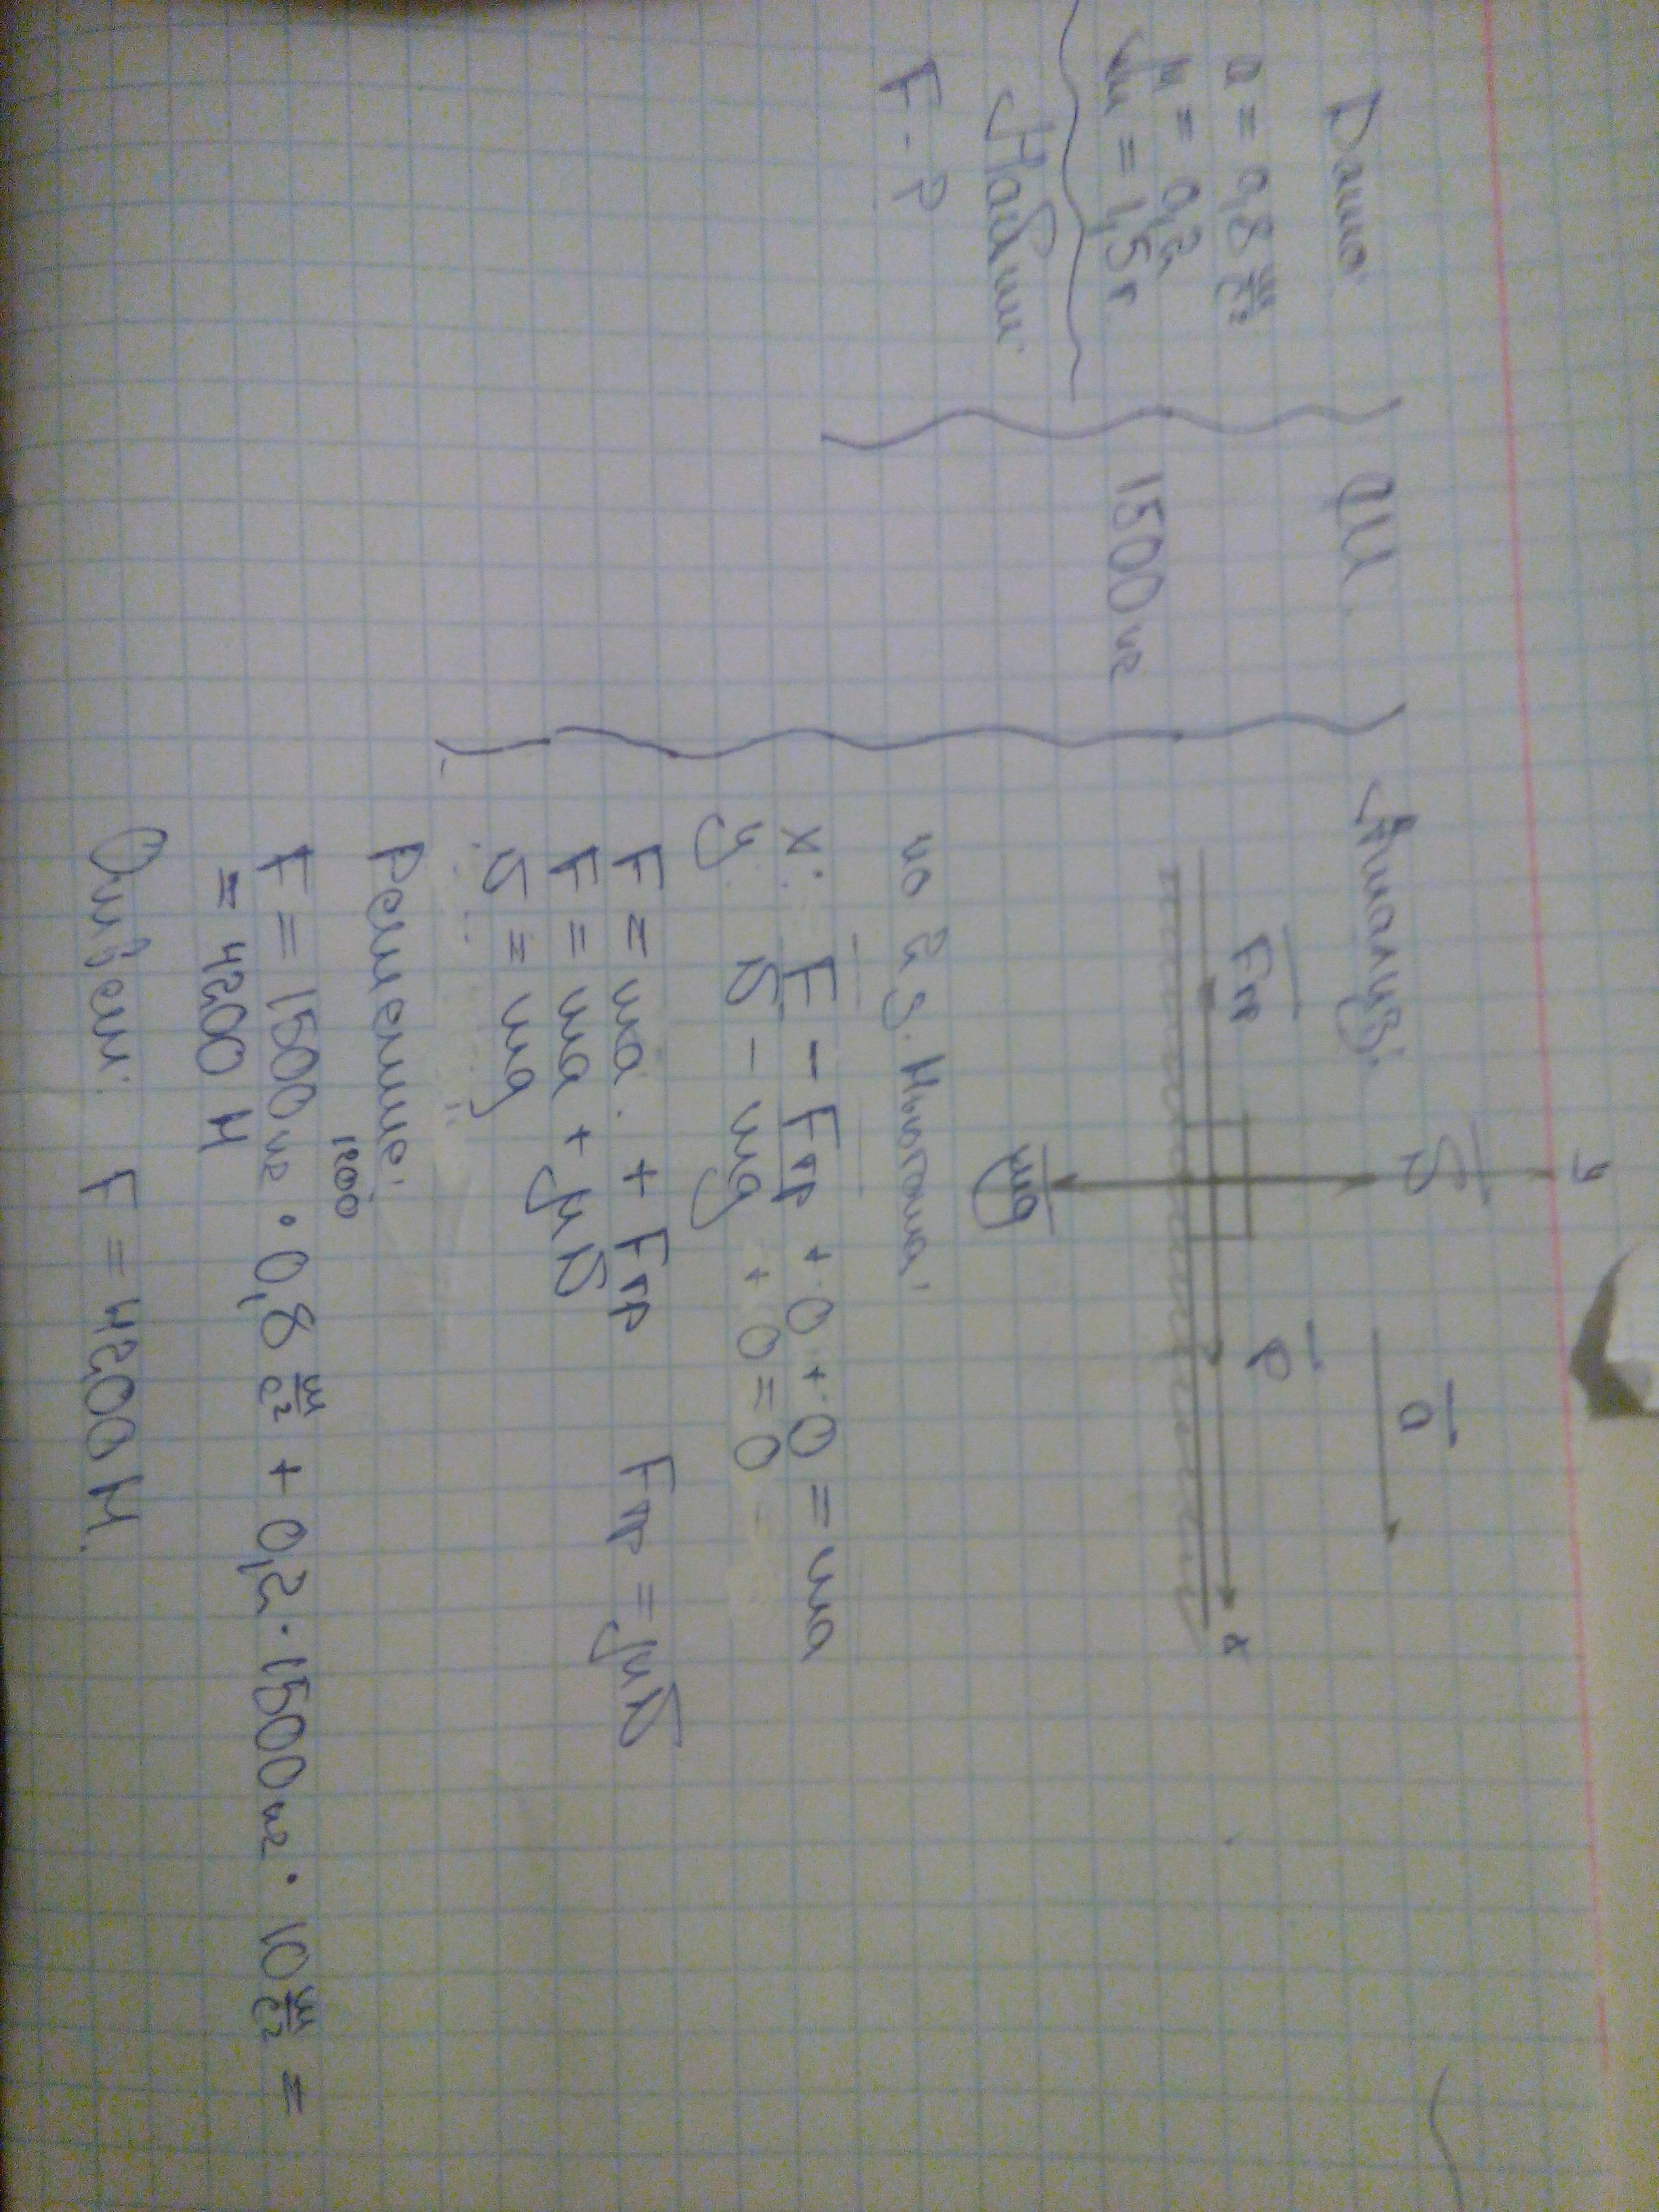 Дано:
a = 0,8 м/с²
μ = 0,2
m = 1,5 т
Найти:
F - ?
СИ
1500 кг
Анализ:
y
N
a
Fтр
F
x
mg
по 2 з. Ньютона:
x: F - Fтр + 0 + 0 = ma
y: N - mg + 0 = 0
F = ma + Fтр Fтр = μN
F = ma + μN
N = mg
Решение:
1200
F = 1500 кг · 0,8 м/с² + 0,2 · 1500 кг · 10 м/с² =
= 4200 Н
Ответ: F = 4200 Н.